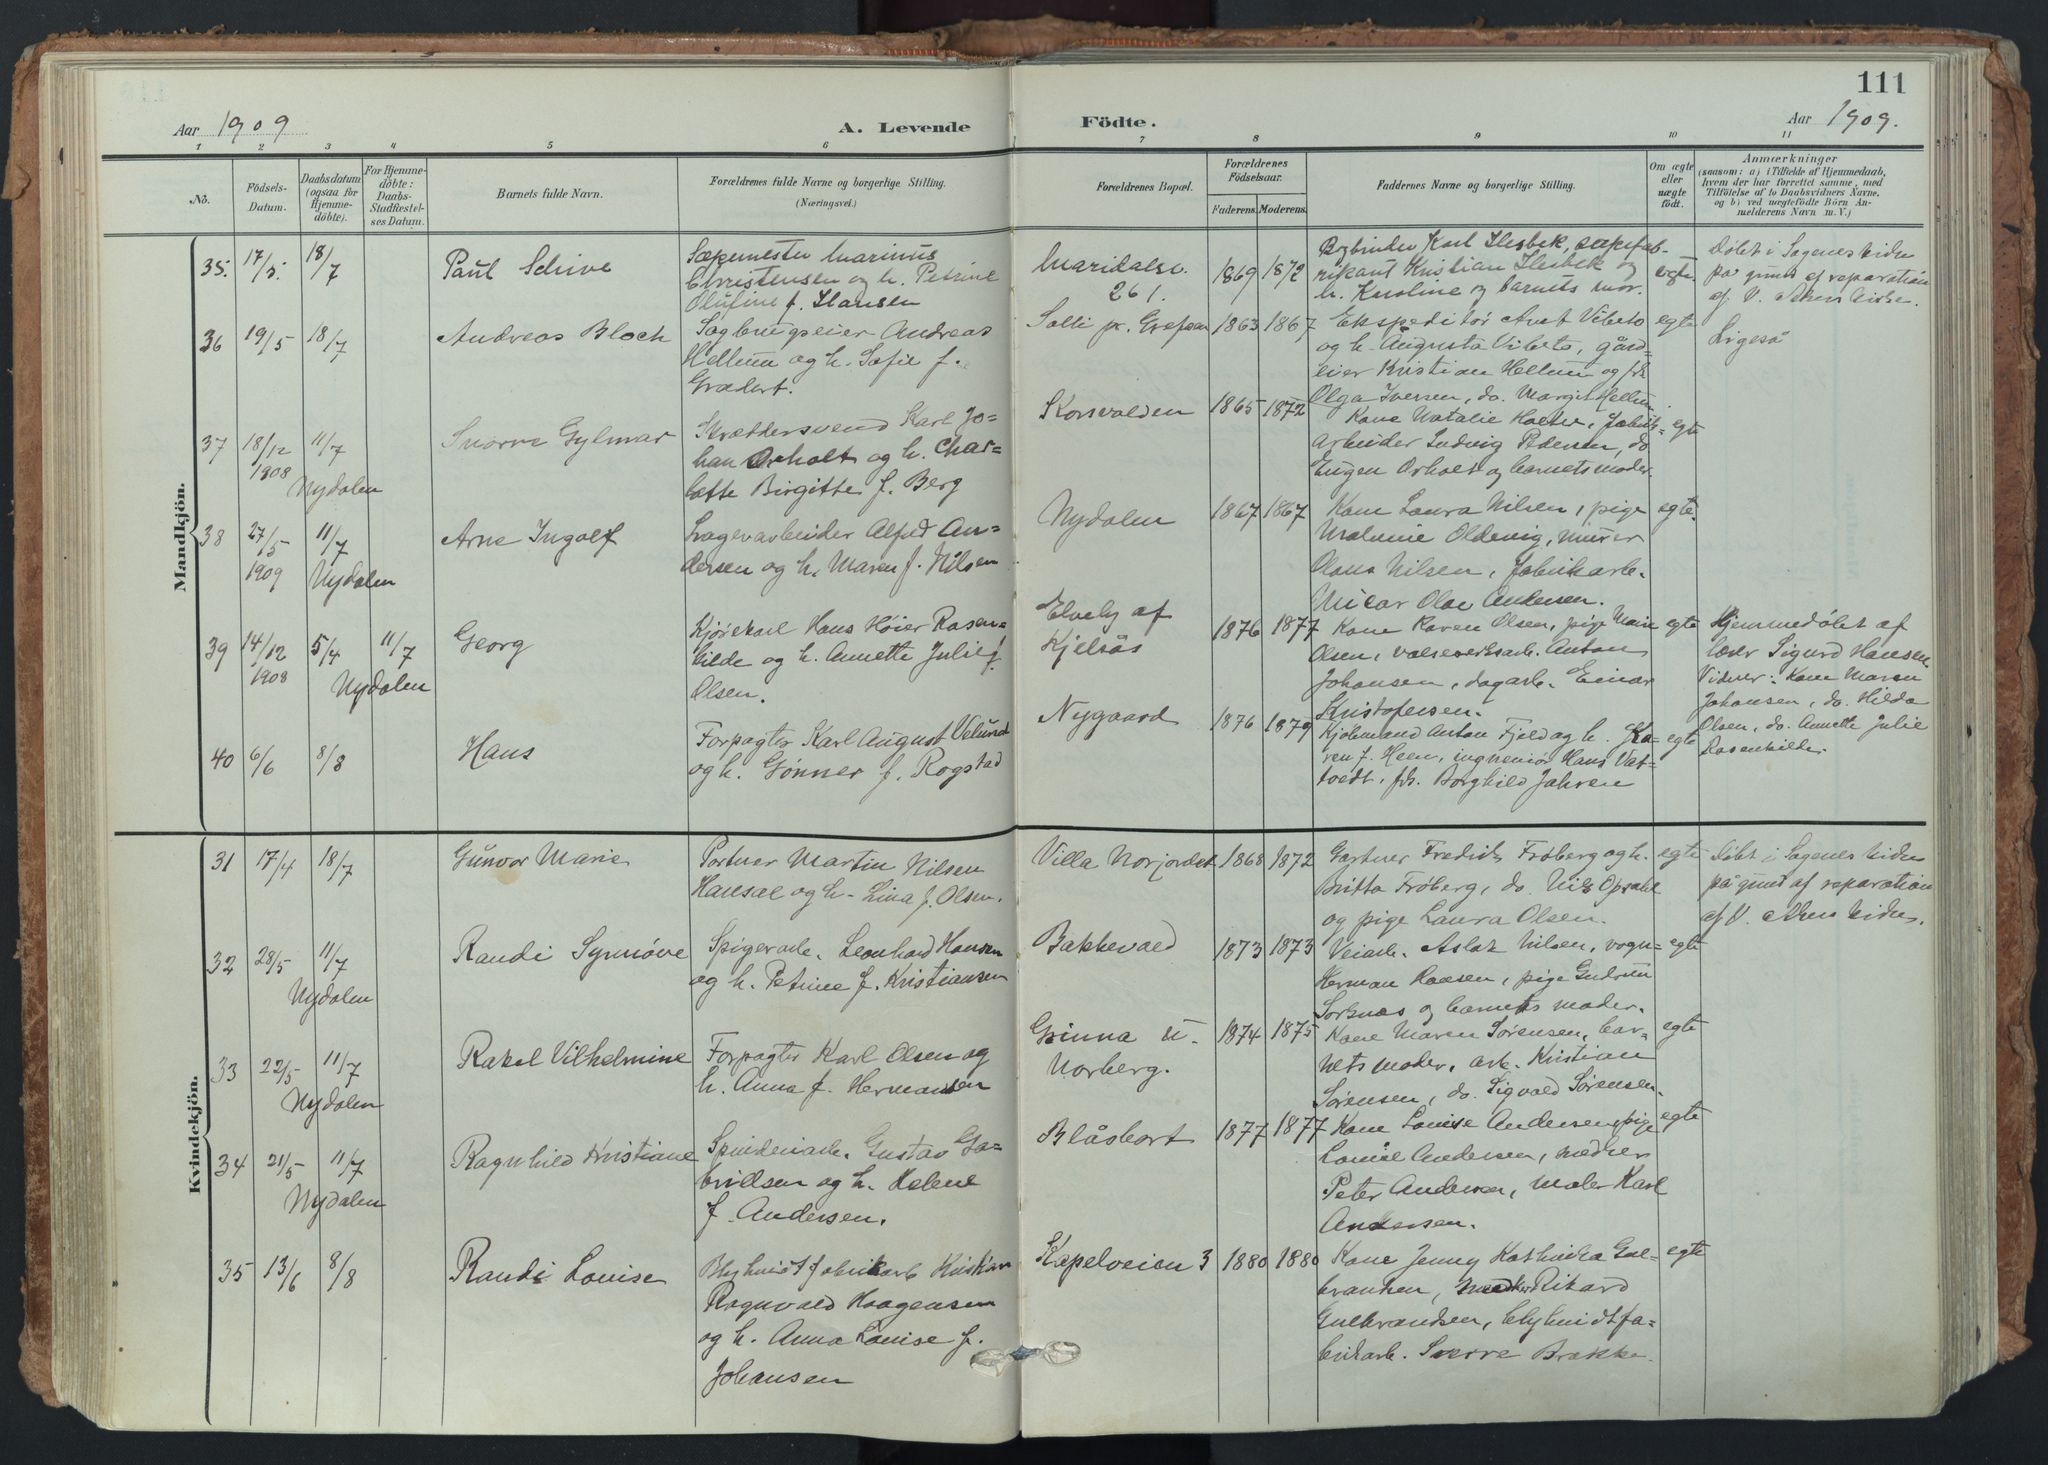 111
Aar 1909
A. Levende
Födte.
Aar 1909.
1 2 3 4 5 6 7 8 9 10 11
No.
Födsels-
Datum.
Daabsdatum
(ogsaa for
Hjemme-
döbte).
For Hjemme-
döbte:
Daabs-
Stadfæstel-
ses Datum.
Barnets fulde Navn.
Forældrenes fulde Navne og borgerlige Stilling.
(Næringsvei.)
Forældrenes Bopæl.
Forældrenes
Födselsaar.
Faderens. Moderens.
Faddernes Navne og borgerlige Stilling.
Om ægte
eller
uægte
födt.
Anmærkninger
(saasom: a) i Tilfælde af Hjemmedaab,
hvem der har forrettet samme, med
Tilföielse af to Daabsvidners Navne,
og b) ved uægtefödte Börn An-
melderens Navn m. V.)
Mandkjön.
35. 17/5. 18/7
Paul Schive
Sæpemester Marinus
Christensen og h. Petrine
Olufine f. Hansen
Maridalsv.
261.
1869 1872
Bogbinder Karl Ilsbek, sæpefab-
rikant Kristian Ilsbek og
h. Karoline og barnets mor.
egte.
Døbt i Sagenes kirke
på grund af reparation
af V. Akers kirke.
36 19/5 18/7
Andreas Bloch
Sagbrugseier Andreas
Hellum og h. Sofie f.
Gradert.
Solli pr. Grefsen
1863 1867
Ekspeditør Arnt Vibeto
og h. Augusta Vibeto, gård-
eier Kristian Hellum og frk.
Olga Iversen, do. Margit Hellum.
egte
Ligeså
37 18/12 1908 11/7
Nydalen
Snorre Gylmar
Skræddersvend Karl Jo-
han Orholt og h. Char-
lotte Birgitte f. Berg
Korsvolden
1865 1872
Kone Natalie Holter, fabrik-
arbeider Ludvig Pedersen, do.
Eugen Orholt og barnets moder.
egte
38 27/5 1909 11/7
Nydalen
Arne Ingolf
Lagerarbeider Alfred An-
dersen og h. Maren f. Nilsen
Nydalen
1867 1867
Kone Laura Nilsen, pige
Malenie Oldevig, murer
Olaus Nilsen, fabrikarb.
Olav Andersen.
egte.
39 14/12 1908 5/4 11/7
Nydalen
Georg
Kjørekarl Hans Høier Rosen-
kilde og h. Annette Julie f.
Olsen.
Elvely af
Kjelsås
1876 1877
Kone Karen Olsen, pige Marie
Olsen, valseverksarb. Anton
Johansen, dagarb. Einar
Kristofersen.
egte
Hjemmedøbt af
lærer Sigurd Hansen
Vidner: Kone Maren
Johansen, do. Hilda
Olsen, do. Annette Julie
Rosenkilde.
40 6/6 8/8
Hans
Forpagter Karl August Velund
og h. Gønner f. Rogstad
Nygaard
1876 1879
Kjøbmand Anton Fjeld og h. Ka-
ren f. Heen, ingeniør Hans Vat-
frk. Borghild Jahren
egte
Kvindekjön.
31 17/4 18/7
Gunvor Marie
Portner Martin Nilsen
Hansal og h. Lina f. Olsen.
Villa Norjordet
1868 1872
Gartner Fredrik Frøberg og h.
Britta Frøberg, do. Nils Opsahl
og pige Laura Olsen.
egte
Døbt i Sagenes kirke
på grund af reparation
af V. Akers kirke.
32 28/5 11/7
Nydalen
Randi Synnøve
Spigerarb. Leonhard Hansen
og h. Petrine f. Kristiansen
Bakkevold
1873 1873
Veiarb. Aslak Nilsen, vogn-
Herman Hansen, pige Gudrun
Sorknæs og barnets moder.
egte
33 22/5 11/7
Nydalen
Rakel Vilhelmine
Forpagter Karl Olsen og
h. Anna f. Hermansen
Grinna u.
Norberg.
1874 1875
Kone Maren Sørensen, bar-
nets moder, arb. Kristian
Sørensen, do. Sigvald Sørensen.
egte
34 21/5 11/7
Nydalen
Ragnhild Kristiane
Spinderiarb. Gustav Ga-
brielsen og h. Helene
f. Andersen.
Blåsbort
1877 1877
Kone Louise Andersen, pige
Louise Andersen, snedker
Peter Andersen, maler Karl
Andersen.
egte
35 13/6 8/8
Randi Louise
Blyhvidtfabrikarb Kristian
Ragnvald Haagensen
og h. Anna Louise f.
Johansen
Kapelveien 3
1880 1880
Kone Jenny Kathinka Gul-
bransen, snedker Rikard
Gulbrandsen, blyhvidtfa-
brikarb. Sverre Brække.
egte